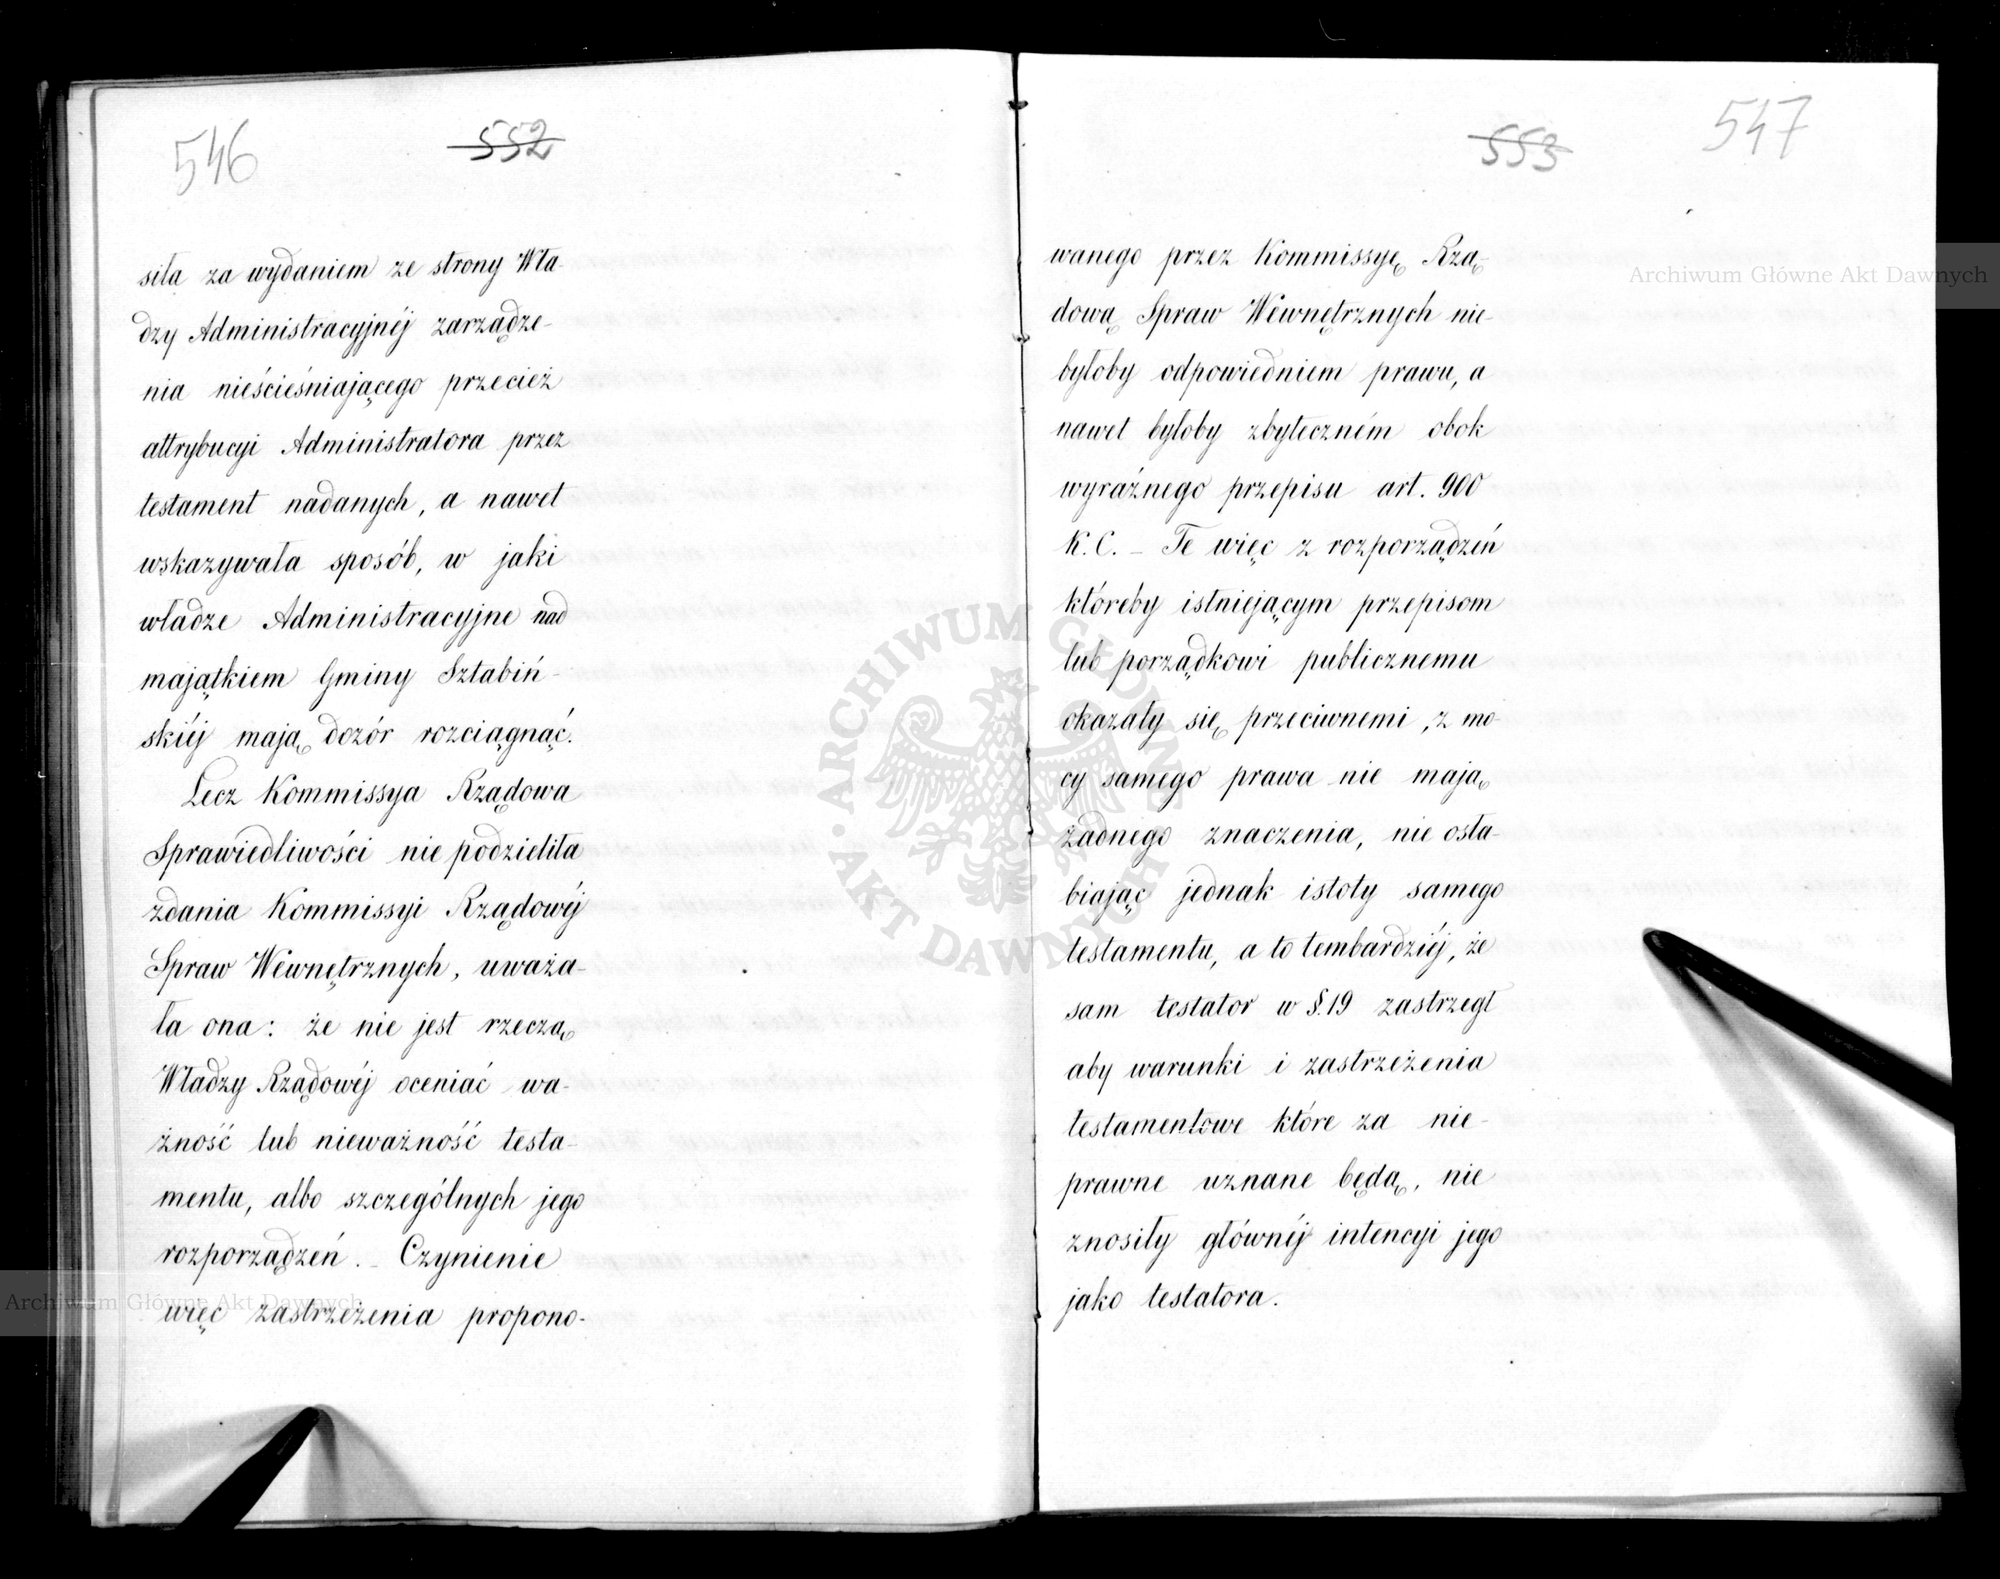 546
552
siła za wydaniem ze strony Wła-
dzy Administracyjnéj zarządze-
nia nieścieśniającego przecież
attrybucyi Administratora przez
testament nadanych, a nawet
wskazywała sposób, w jaki
władze Administracyjne nad
majątkiem Gminy Sztabiń-
skiéj mają dozór rozciągnąć.
Lecz Kommissya Rządowa
Sprawiedliwości nie podzieliła
zdania Kommissyi Rządowéj
Spraw Wewnętrznych, uważa-
ła ona: że nie jest rzeczą
Władzy Rządowéj oceniać wa-
żność lub nieważność testa-
mentu, albo szczególnych jego
rozporządzeń. – Czynienie
więc zastrzeżenia propono-
553
547
wanego przez Kommissyę Rzą-
dową Spraw Wewnętrznych nie-
byłoby odpowiedniem prawu, a
nawet byłoby zbyteczném obok
wyraźnego przepisu art. 900
K.C. – Te więc z rozporządzeń
któreby istniejącym przepisom
lub porządkowi publicznemu
okazały się przeciwnemi, z mo-
cy samego prawa nie mają
żadnego znaczenia, nie osła-
biając jednak istoty samego
testamentu, a to tembardziéj, że
sam testator w §.19 zastrzegł
aby warunki i zastrzeżenia
testamentowe które za nie-
prawne uznane będą, nie
znosiły głównéj intencyi jego
jako testatora.
Archiwum Główne Akt Dawnych
ARCHIWUM GŁÓWNE AKT DAWNYCH
Archiwum Główne Akt Dawnych